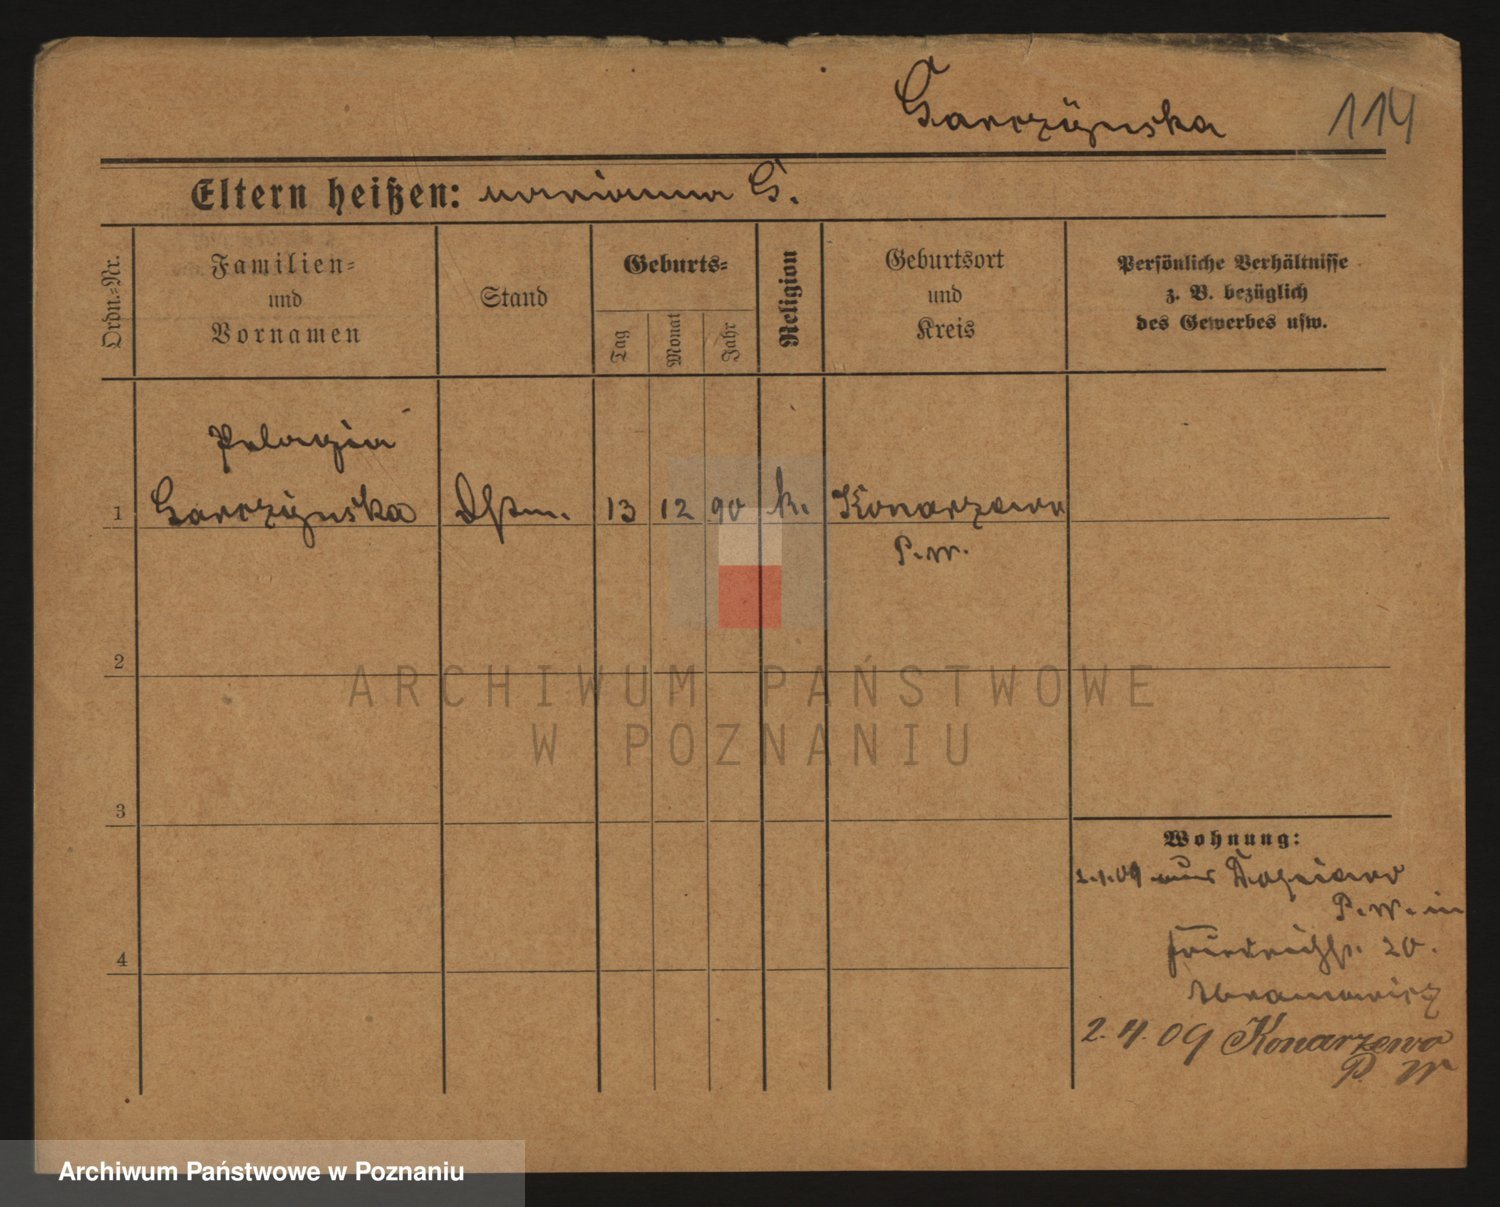 Garczÿnska 114
Eltern heißen: Marianna G.
Ordn.-Nr.
Familien-
und
Vornamen
Stand
Geburts-
Tag
Monat
Jahr
Religion
Geburtsort
und
Kreis
Persönliche Verhältnisse
z. B. bezüglich
des Gewerbes usw.
Pelagia
1 Garczÿnska Dstm. 13 12 90 k. Konarzewo
P. W.
2
3
4
Wohnung:
2.1.09 aus
P. W. in
Friedrichstr. 20.
Abramowicz
2. 4. 09 Konarzewo
P. W
ARCHIWUM PAŃSTWOWE
W POZNANIU
Archiwum Państwowe w Poznaniu